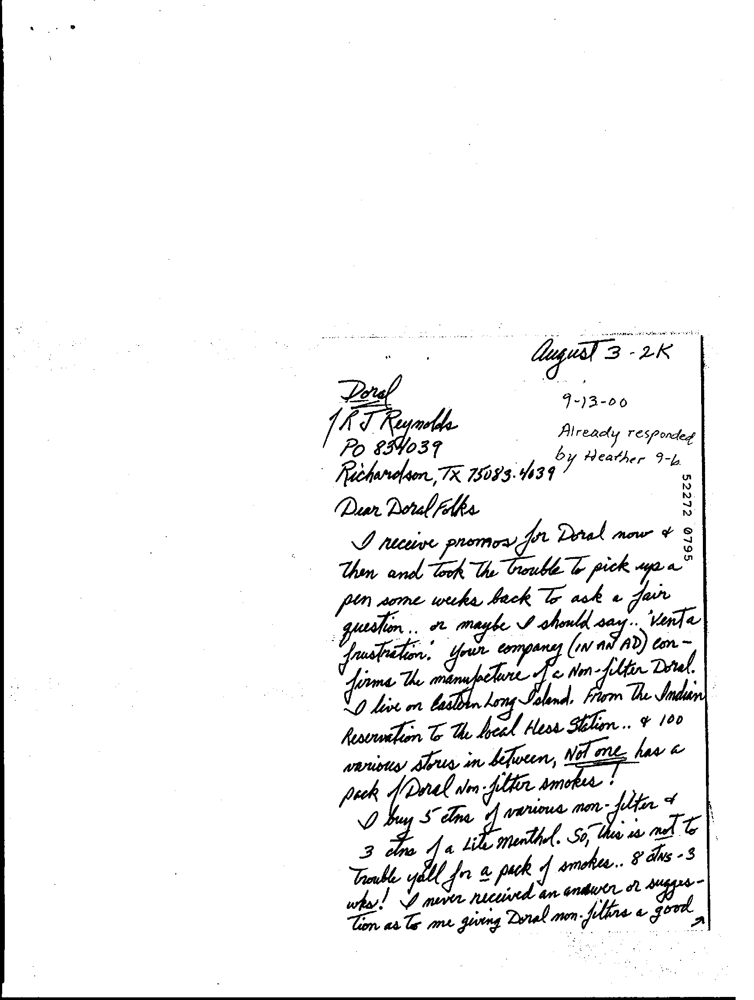 August 3 - 2K
Doral
9-13-00
R J Reynolds
Already responded
PO 834039
by Heather 9-6
Richardson, TX 75083-4039
52272 0795
Dear Doral Folks
I receive promos for Doral now &
then and took the trouble to pick up a
pen some weeks back to ask a fair
question.. or maybe I should say.. 'vent a
frustration.' Your company (IN AN AD) con-
firms the manufacture of a Non-filter Doral.
I live on Eastern Long Island. From the Indian
Reservation to the local Hess Station.. & 100
various stores in between, Not one has a
pack of Doral Non-filter smokes!
I buy 5 ctns of various non-filter &
3 ctns of a Lite Menthol. So, this is not to
trouble yall for a pack of smokes.. 8 ctns - 3
wks! I never received an answer or sugges-
tion as to me giving Doral non-filters a good